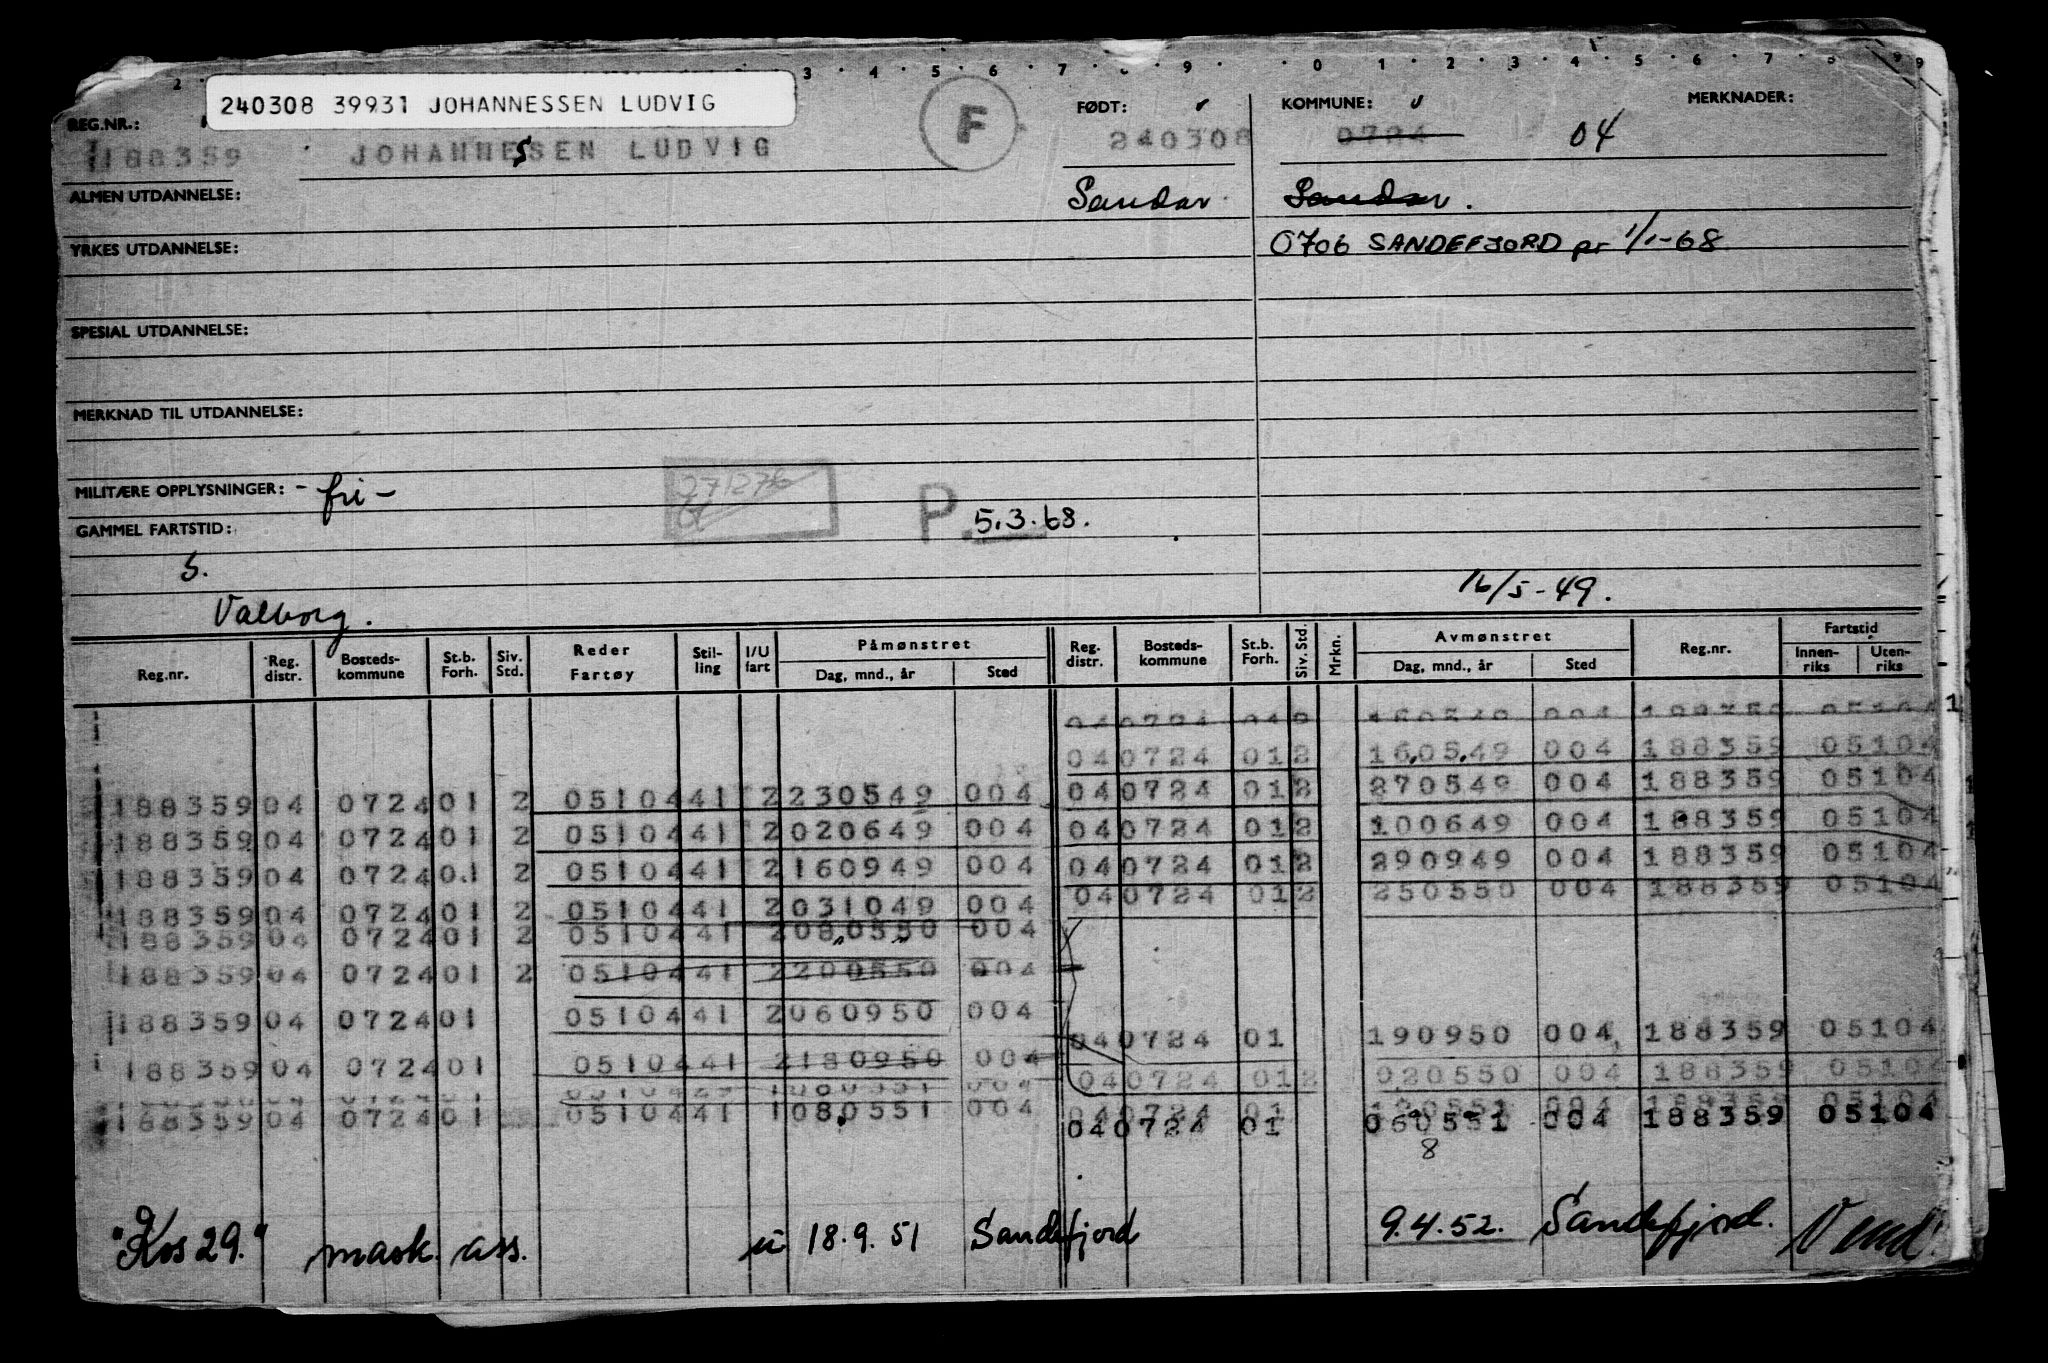 240308 39931 JOHANNESSEN LUDVIG
REG.NR.: FØDT: KOMMUNE: MERKNADER:
188359 JOHANNESSEN LUDVIG F 240308 0724 04
ALMEN UTDANNELSE: Sandar Sandar.
YRKES UTDANNELSE: 0706 SANDEFJORD pr 1/1-68
SPESIAL UTDANNELSE:
MERKNAD TIL UTDANNELSE:
271276
MILITÆRE OPPLYSNINGER: - fri -
P. 5.3.68.
GAMMEL FARTSTID:
S. 16/5-49.
Valborg.
Reg.nr. Reg. distr. Bosteds-kommune St.b. Forh. Siv. Std. Reder Fartøy Stil-ling I/U fart Påmønstret Dag, mnd., år Sted Reg. distr. Bosteds-kommune St.b. Forh. Siv. Std. Mrkn. Avmønstret Dag, mnd., år Sted Reg.nr. Fartstid Innen-riks Uten-riks
040724 012 160549 004 188359 05104
040724 012 160549 004 188359 05104
188359 04 072401 2 0510441 2230549 004 040724 012 270549 004 188359 05104
188359 04 072401 2 0510441 2020649 004 040724 012 100649 004 188359 05104
188359 04 072401 2 0510441 2160949 004 040724 012 290949 004 188359 05104
188359 04 072401 2 0510441 2031049 004 040724 012 250550 004 188359 05104
188359 04 072401 2 0510441 2080550 004
188359 04 072401 2 0510441 2200550 004
188359 04 072401 0510441 2060950 004 040724 01 190950 004 188359 05104
188359 04 072401 0510441 2180950 004 040724 012 020550 004 188359 05104
188359 04 072401 0510441 1080551 004 040724 01 060551 004 188359 05104
8
"Kos 29." mask. ass. u 18.9.51 Sandefjord 9.4.52. Sandefjord. Vend!